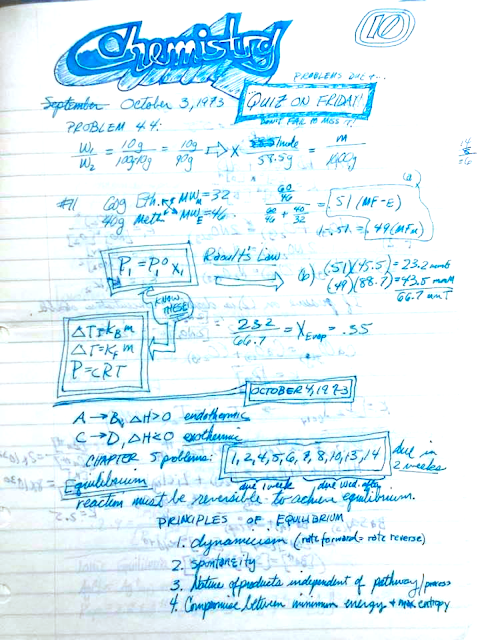 Chemistry
10
PROBLEMS DUE
September October 3, 1973
QUIZ ON FRIDAY!
DON'T FAIL TO MISS IT!
PROBLEM 44:
W₁/W₂ = 10g/100g-10g = 10g/90g ⇒ X 1 mole/58.5g = m/1000g
(a)
#11 60g Eth. MW = 32
40g Meth MW_E = 46
60/46 / 60/46 + 40/32 = .51 (MF-E)
1-.51 = .49 (MF M)
P₁ = P₁⁰X₁
Raoult's Law
(b) (.51)(45.5) = 23.2 mm
(.49)(88.7) = 43.5 mm
66.7 mm
KNOW THESE
ΔT=k_B m
ΔT=K_f m
P=CRT
23.2/66.7 = X = .35
OCTOBER 4, 1973
A → B, ΔH>0 endothermic
C → D, ΔH<0 exothermic
CHAPTER 5 problems: 1, 2, 4, 5, 6, 7, 8, 10, 13, 14 due in 2 weeks
due 1 week due wed. after
Equilibrium
reaction must be reversible to achieve equilibrium.
PRINCIPLES OF EQUILIBRIUM
1. dynamicism (rate forward = rate reverse)
2. spontaneity
3. Nature of products independent of pathway/process
4. Compromise between minimum energy + max entropy